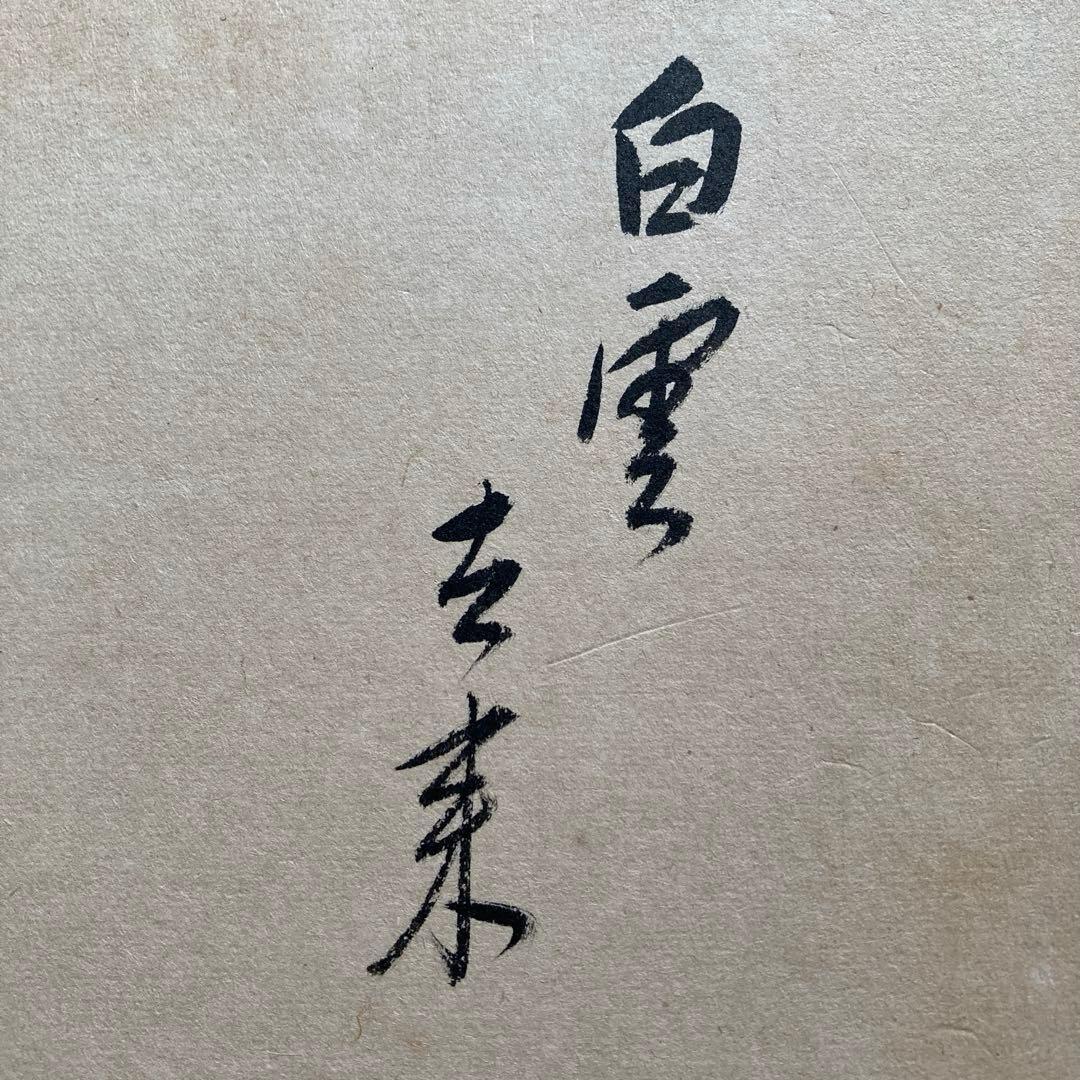 白雲
去来